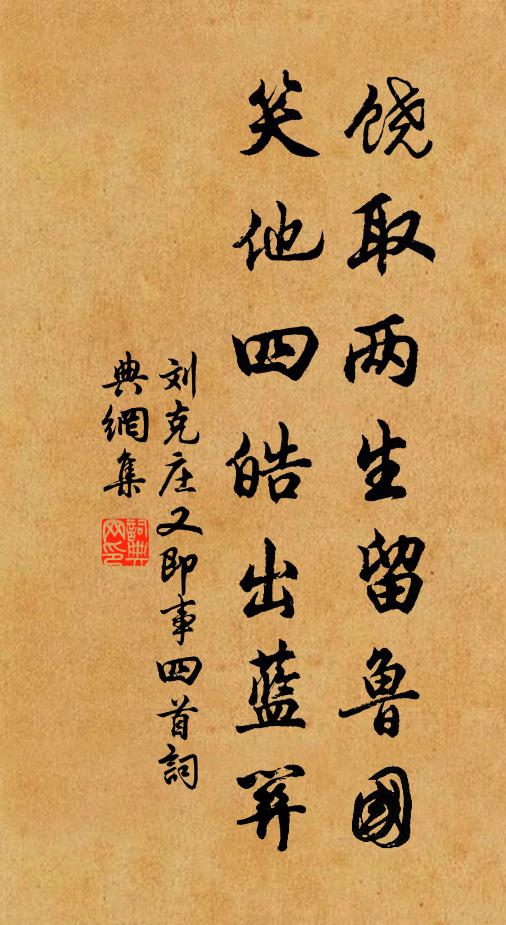 饶取两生留鲁國
笑他四皓出藍關
刘克庄又即事四首詞
典網集
詞典网印